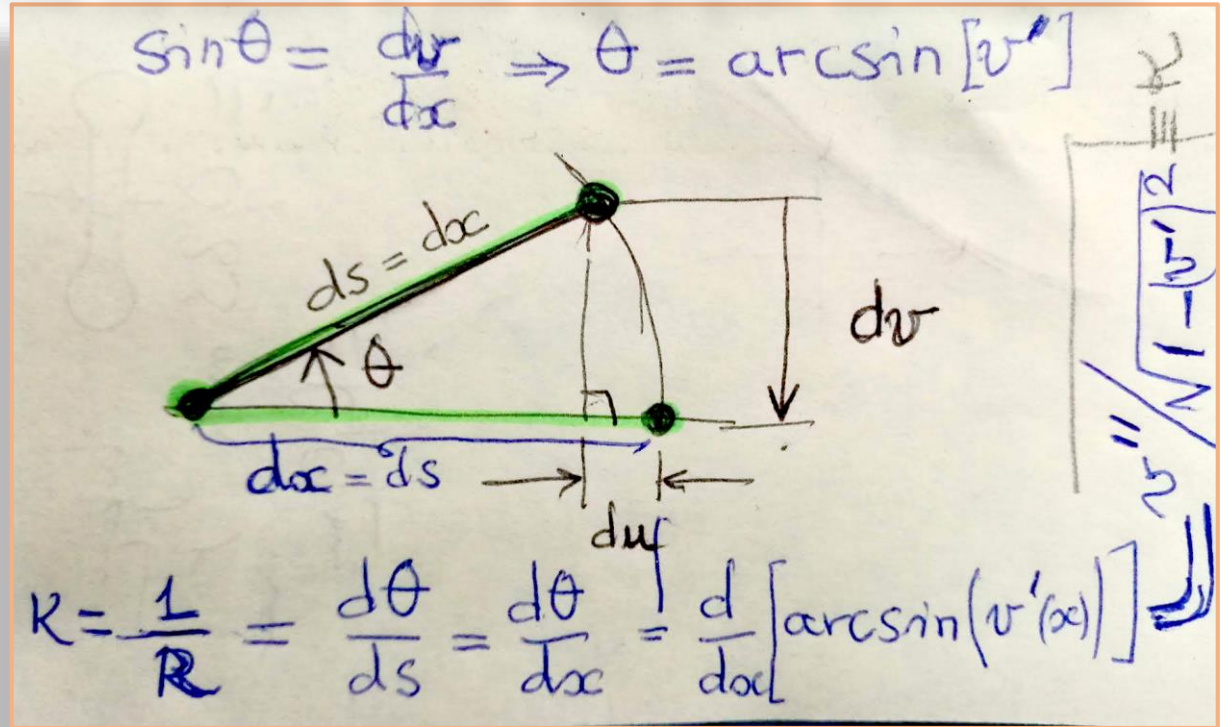 sinθ = dv/dx ⇒ θ = arcsin[v']
ds = dx
θ
dv
dx = ds
du
κ = 1/R = dθ/ds = dθ/dx = d/dx[arcsin(v'(x))]
= v''/√1-(v')² ≡ κ